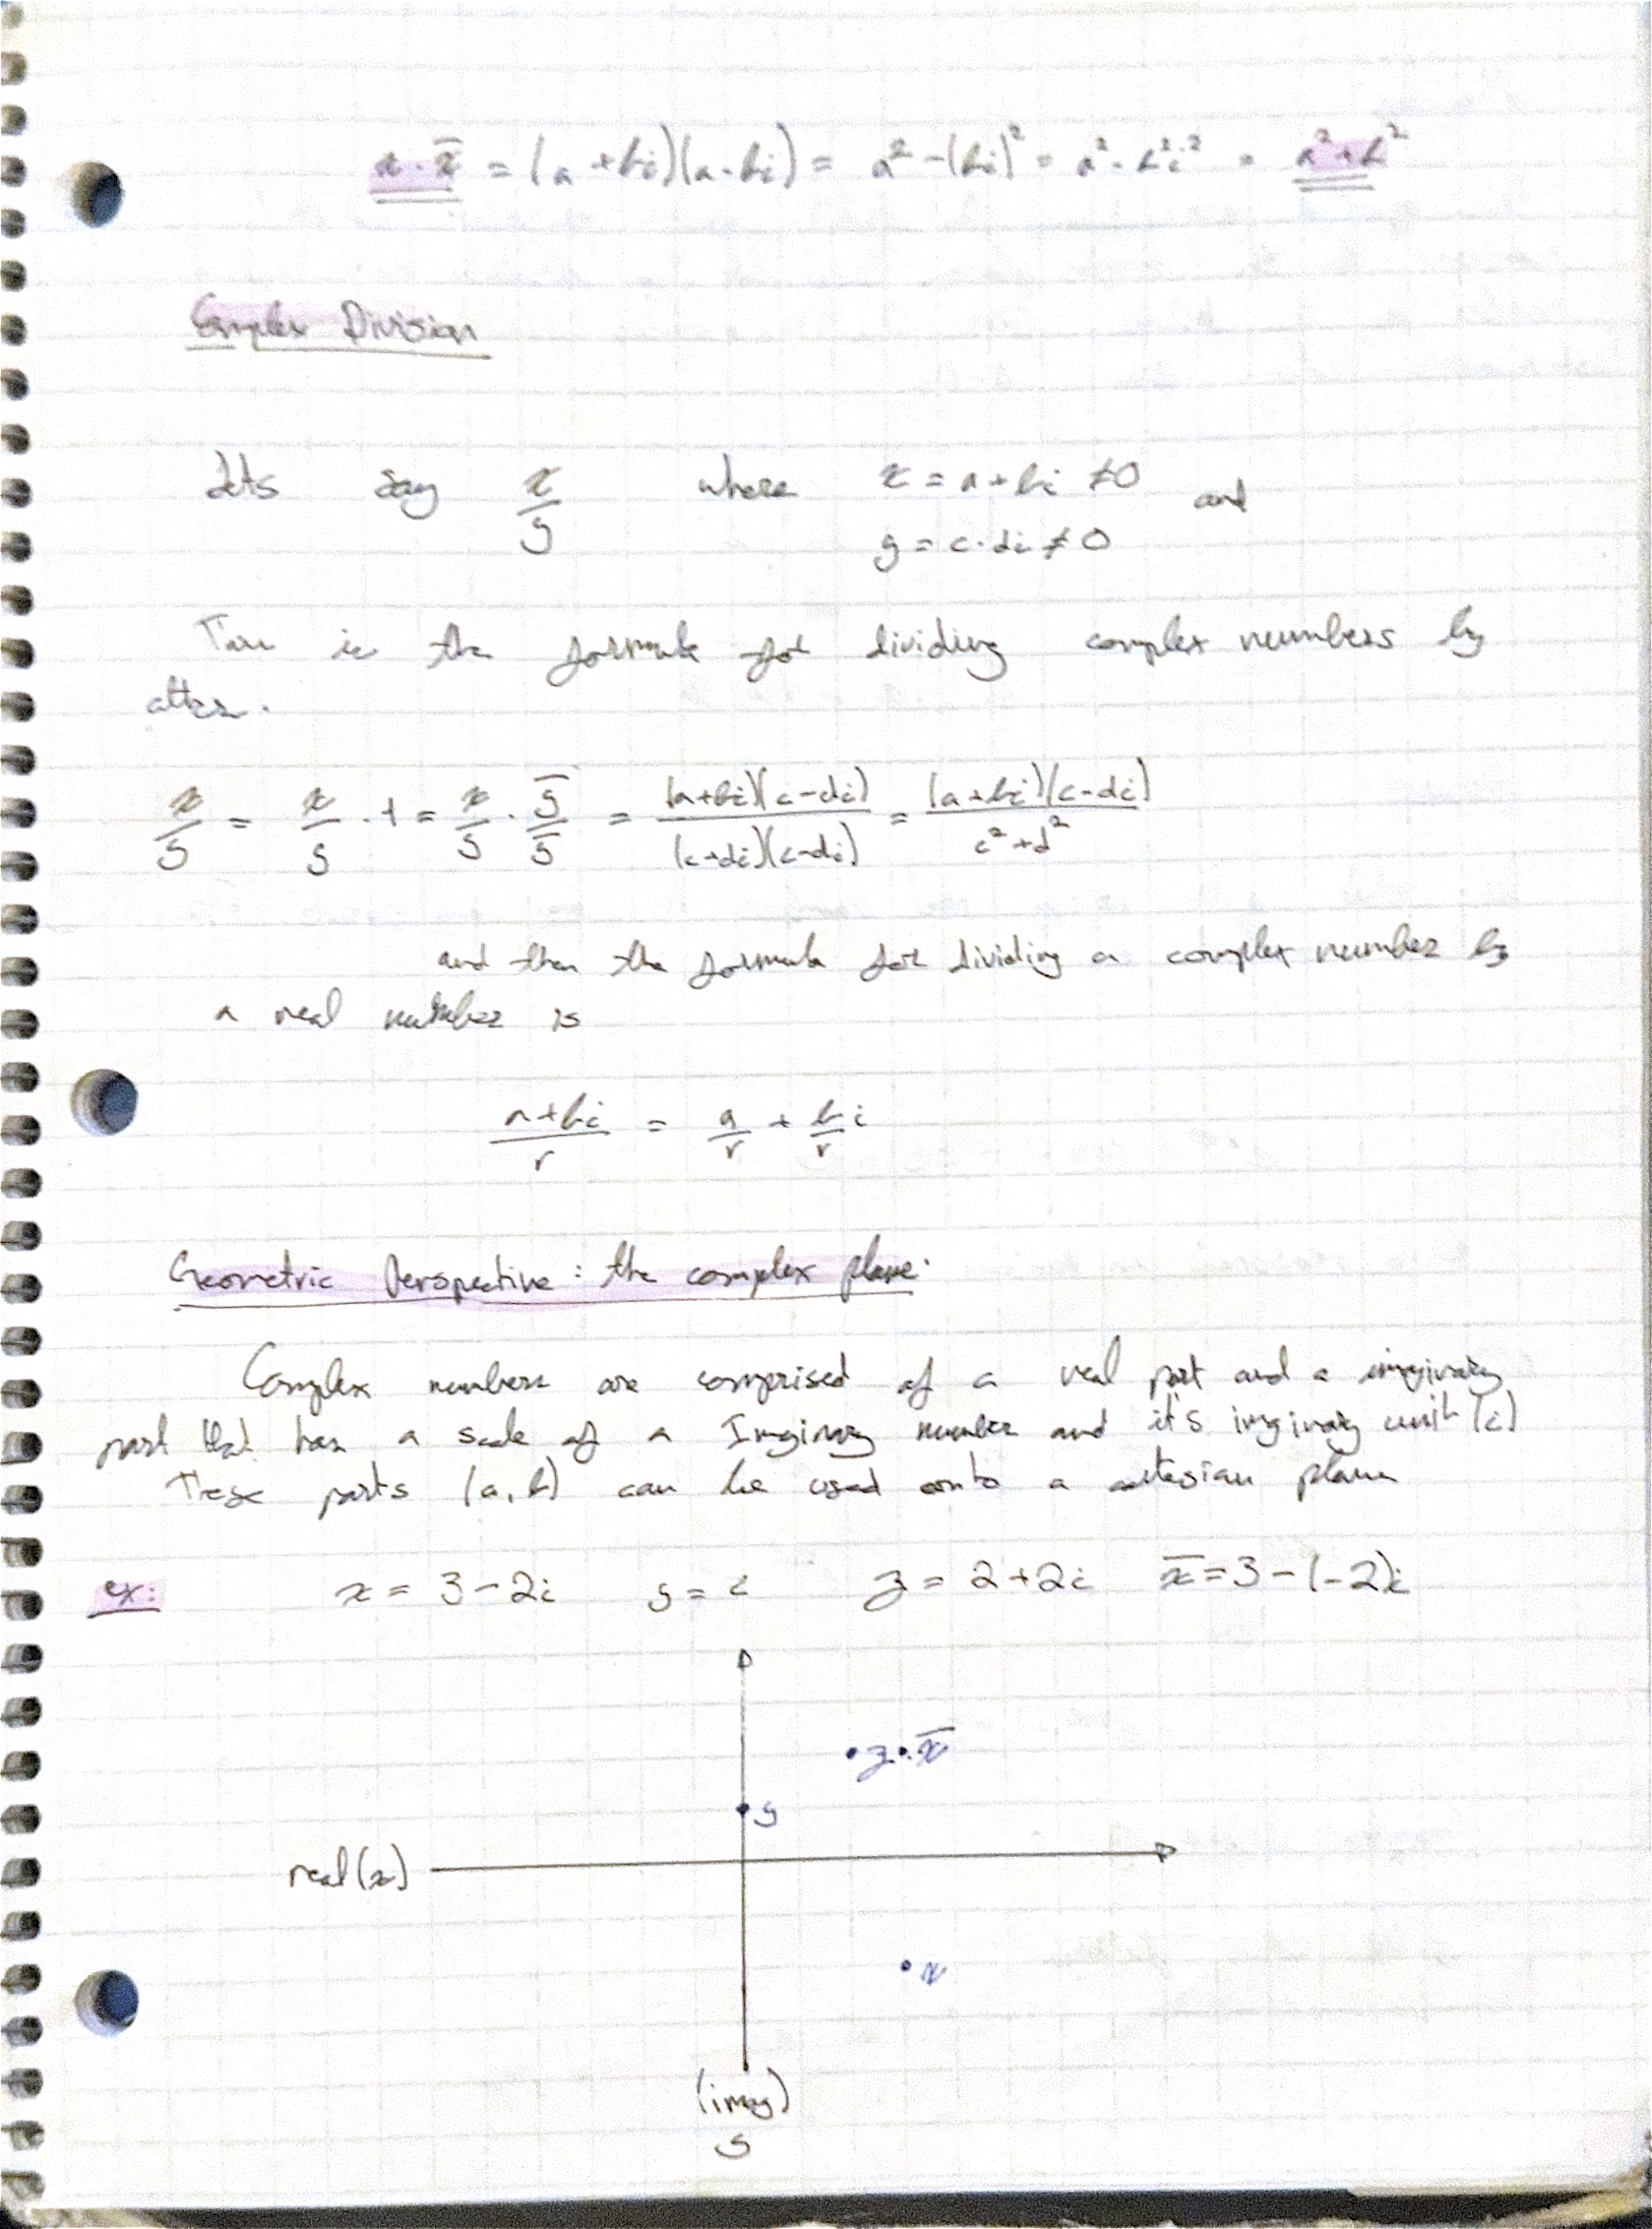 x · x̅ = (a + bi)(a - bi) = a² - (bi)² = a² - b²i² = a² + b²
Complex Division
Lets say x/y where x = a + bi ≠ 0 and
y = c · di ≠ 0
is the formula for dividing complex numbers by
x/y = x/y · 1 = x/y · y̅/y̅ = (a+bi)(c-di)/(c+di)(c-di) = (a+bi)(c-di)/c²+d²
and then the formula for dividing a complex number by
a real number is
a+bi/r = a/r + b/r i
Geometric Perspective: the complex plane.
Complex numbers are comprised of a real part and a
part that has a scale of a number and it's unit (i)
These parts (a, b) can be used onto a plane
ex: x = 3 - 2i y = i z = 2 + 2i x̅ = 3 - (-2)i
z x̅
y
real(x)
x
(imag)
y